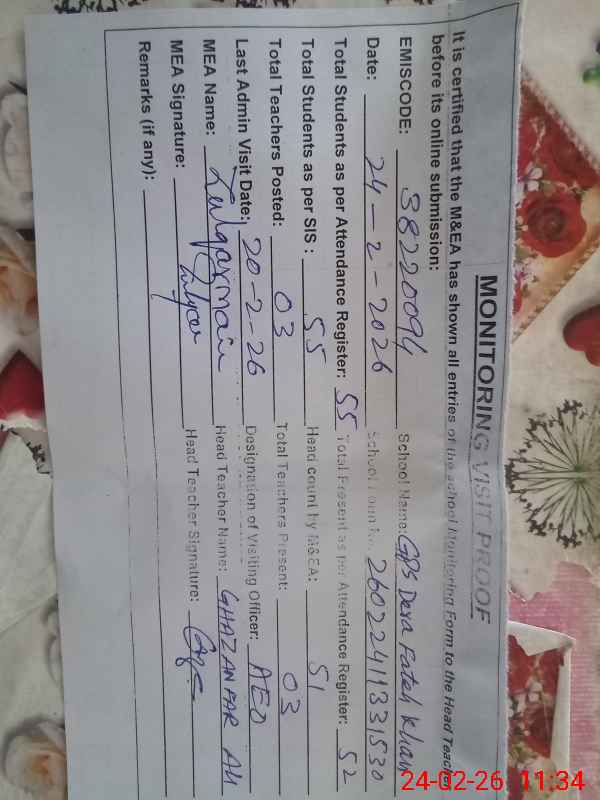 MONITORING VISIT PROOF
It is certified that the M&EA has shown all entries of the school Monitoring Form to the Head Teacher
before its online submission:
EMISCODE: 38220094 School Name: GPS Dera Fateh Khan
Date: 24-2-2026 School Form No. 26022411331530
Total Students as per Attendance Register: 55 Total Present as per Attendance Register: 52
Total Students as per SIS: 55 Head count by M&EA: 51
Total Teachers Posted: 03 Total Teachers Present: 03
Last Admin Visit Date: 20-2-26 Designation of Visiting Officer: AEO
MEA Name: Zulqarnain Head Teacher Name: GHAZANFAR Ali
MEA Signature: Head Teacher Signature:
Remarks (if any):
24-02-26 11:34